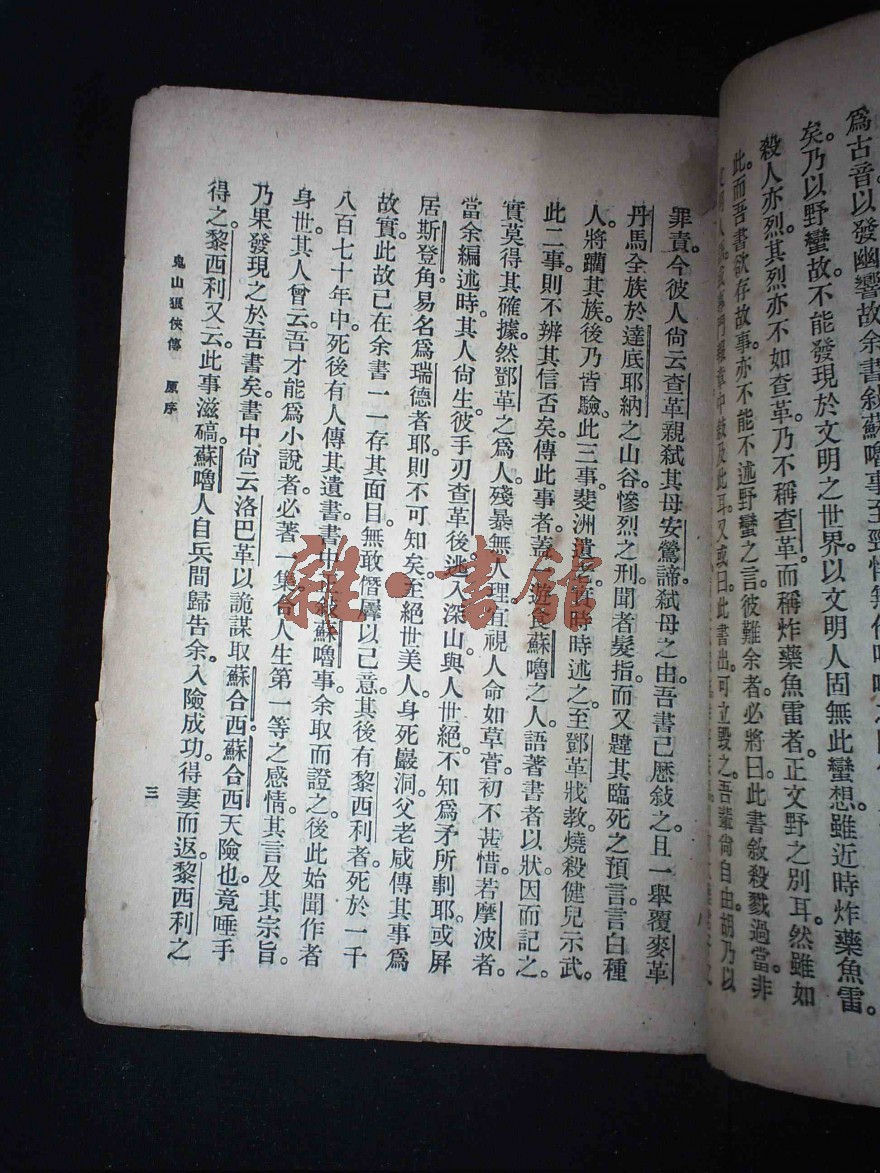 爲古音。以發幽響。故余書敍蘇嚕事。至
矣。乃以野蠻故。不能發現於文明之世界。以文明人固無此蠻想。雖近時炸藥魚雷。
殺人亦烈。其烈亦不如查革。乃不稱查革。而稱炸藥魚雷者。正文野之別耳。然雖如
此。而吾書欲存故事。亦不能不述野蠻之言。彼難余者。必將曰。此書敘殺戮過當。非
及此耳。又或曰。此書出。可立毀之。吾輩尙自由。胡乃以
罪責。今彼人尙云查革親弑其母安鶩諦。弑母之由。吾書已歷敍之。且一舉覆麥革
丹馬全族於達底耶納之山谷。慘烈之刑。聞者髮指。而又韙其臨死之預言。言白種
人。將躪其族。後乃皆驗。此三事。斐洲遺老。實時時述之。至鄧革戕教。燒殺健兒示武。
此二事。則不辨其信否矣。傳此事者。蓋遊食蘇嚕之人。語著書者以狀。因而記之。
實莫得其確據。然鄧革之爲人。殘暴無人理。有視人命如草菅。初不甚惜。若摩波者。
當余編述時。其人尙生。彼手刃查革後。逃入深山。與人世絕。不知爲矛所剚耶。或屏
居斯登角。易名爲瑞德者耶。則不可知矣。至絕世美人。身死巖洞。父老咸傳其事爲
故實。此故已在余書一一存其面目。無敢僭羼以己意。其後有黎西利者。死於一千
八百七十年中。死後有人傳其遺書。書中正敍蘇嚕事。余取而證之。後此始聞作者
身世。其人曾云。吾才能爲小說者。必著一集合人生第一等之感情。其言及其宗旨。
乃果發現之於吾書矣。書中尙云洛巴革以詭謀取蘇合西。蘇合西天險也。竟唾手
得之。黎西利又云。此事滋碻。蘇嚕人自兵間歸告余。入險成功。得妻而返。黎西利之
鬼山狼俠傳　原序
三
雜·書館